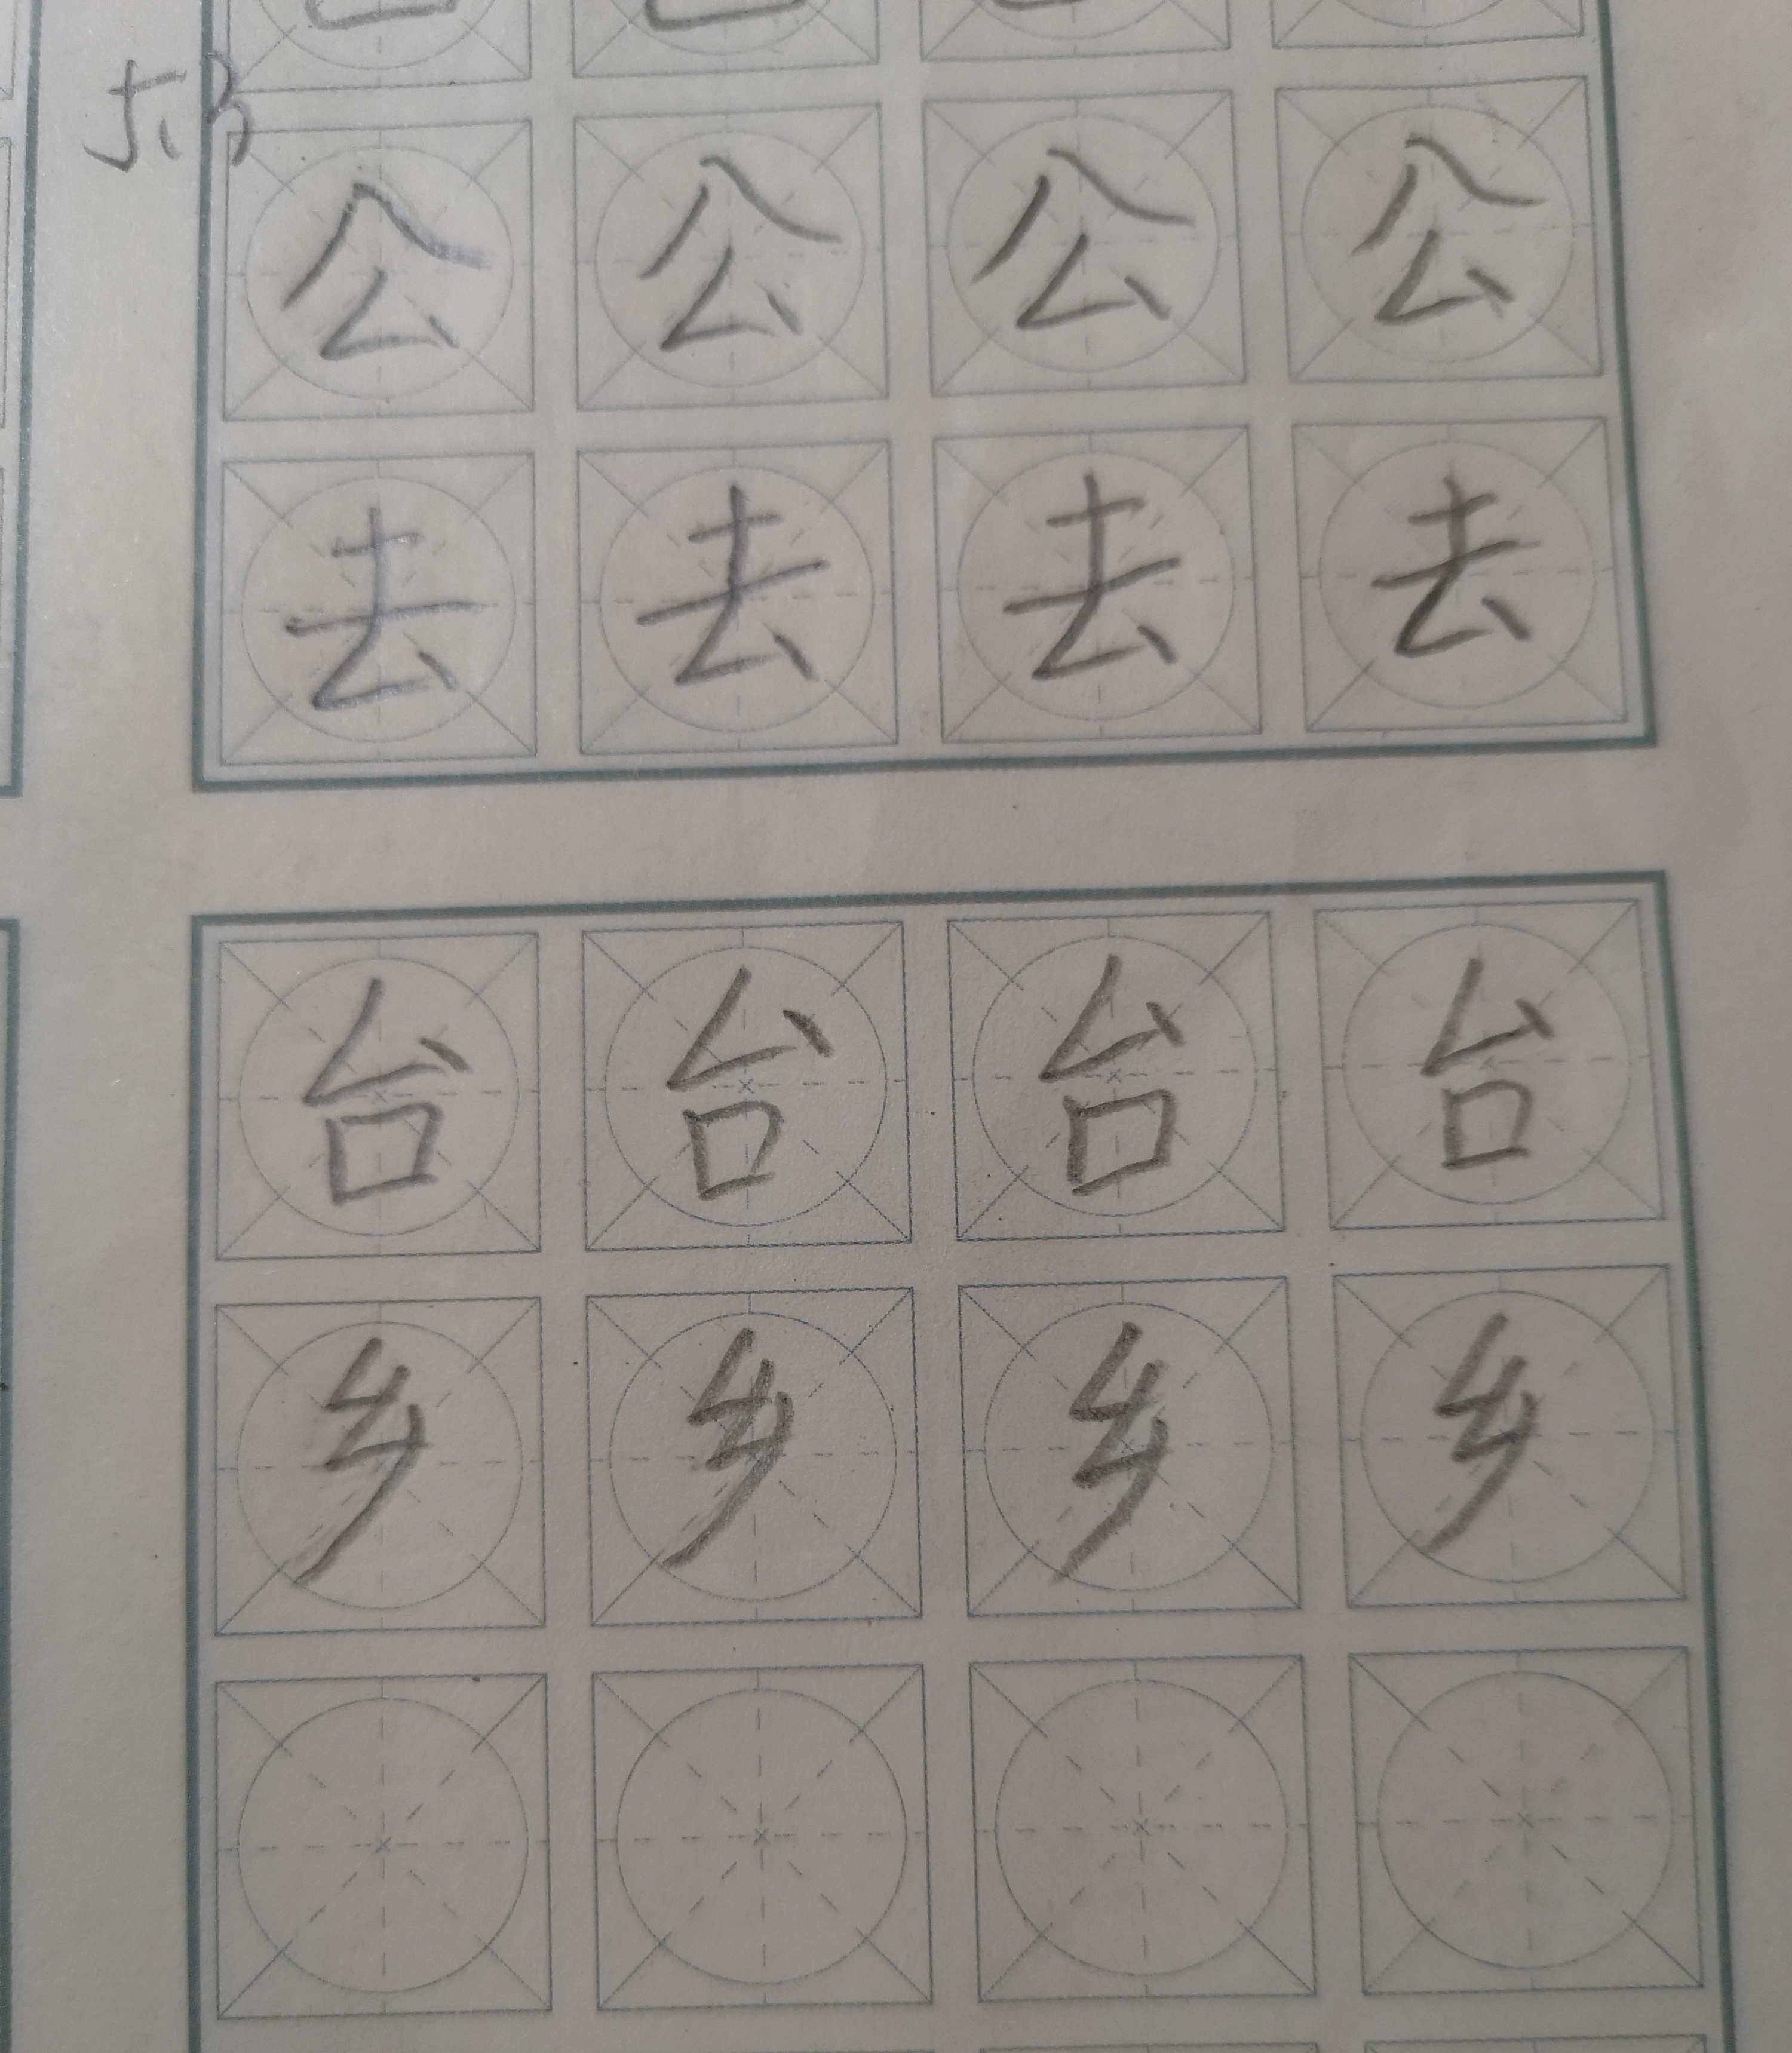 5.3
公 公 公 公
去 去 去 去
台 台 台 台
乡 乡 乡 乡